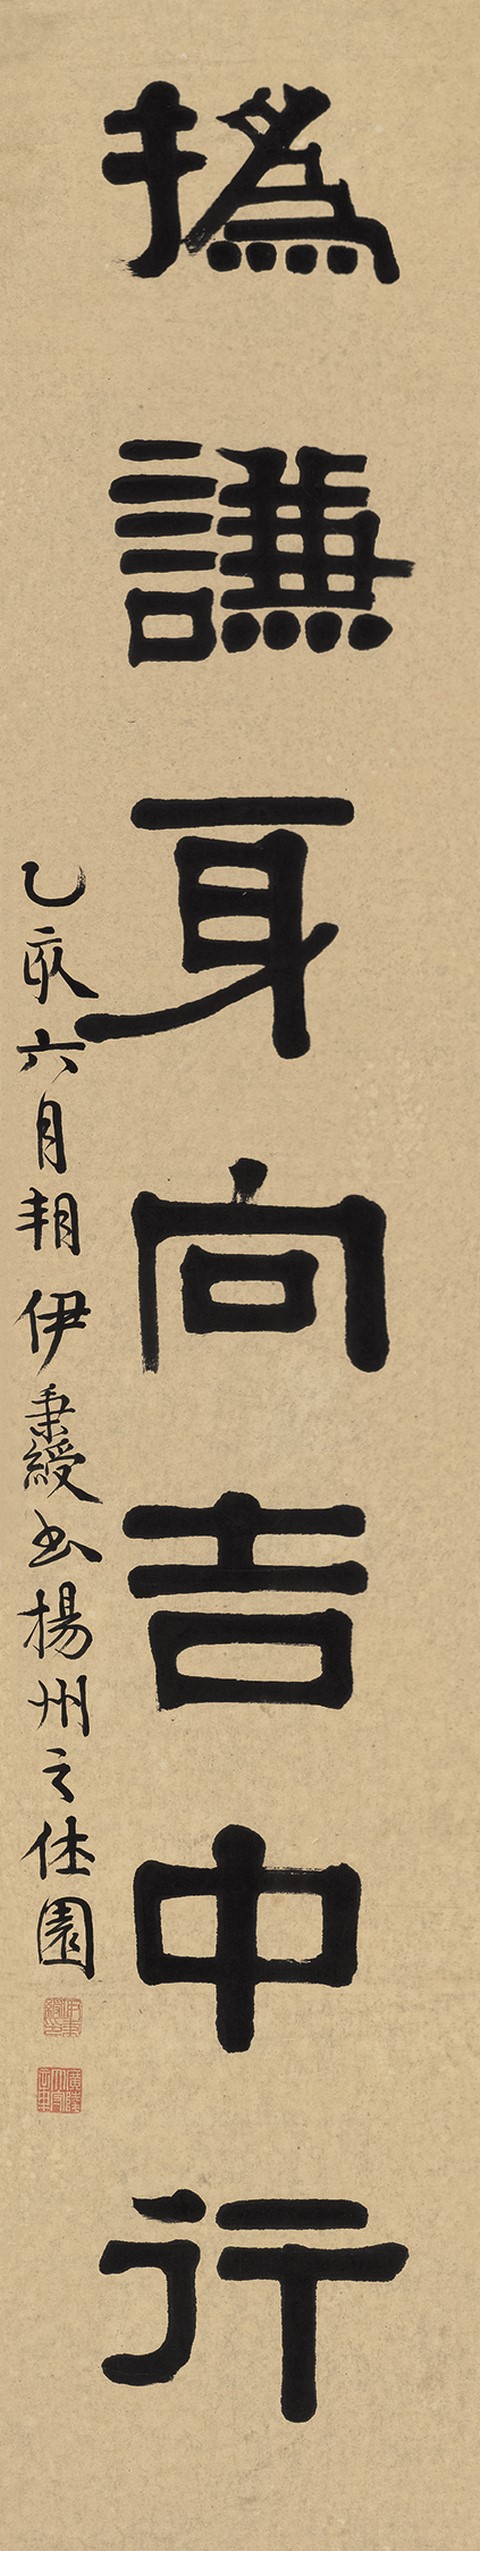 撝謙身向吉中行
乙亥六月朔伊秉綬書楊州之休園